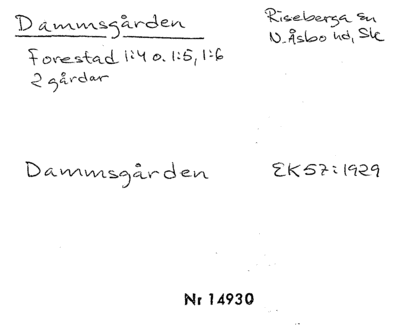 Dammsgården
Riseberga sn
N. Åsbo hd, Sk
Forestad 1:4 o. 1:5, 1:6
2 gårdar
Dammsgården
EK57:1929
Nr 14930